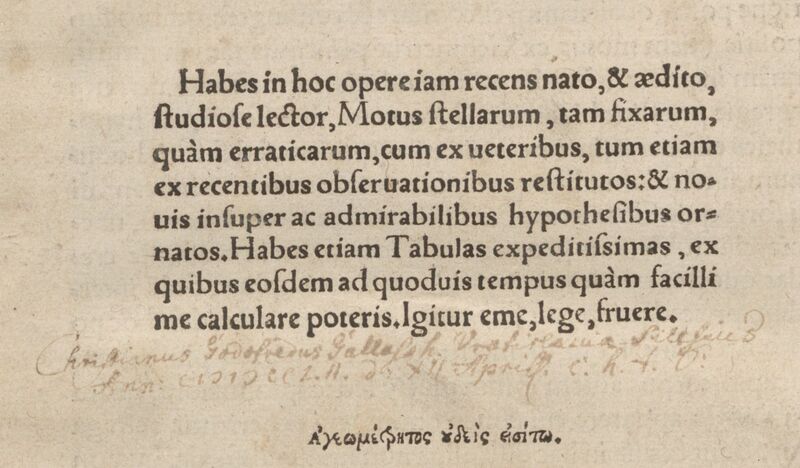 Habes in hoc opere iam recens nato, & ædito,
ſtudioſe lector, Motus ſtellarum, tam fixarum,
quàm erraticarum, cum ex ueteribus, tum etiam
ex recentibus obſeruationibus reſtitutos: & no-
uis inſuper ac admirabilibus hypotheſibus or-
natos. Habes etiam Tabulas expeditiſsimas, ex
quibus eoſdem ad quoduis tempus quàm facilli
me calculare poteris. Igitur eme, lege, fruere.
Christianus Godofredus
Ann: Aprił.
Ἀγεωμέτρητος ȣ̓δεὶς εἰσίτω.